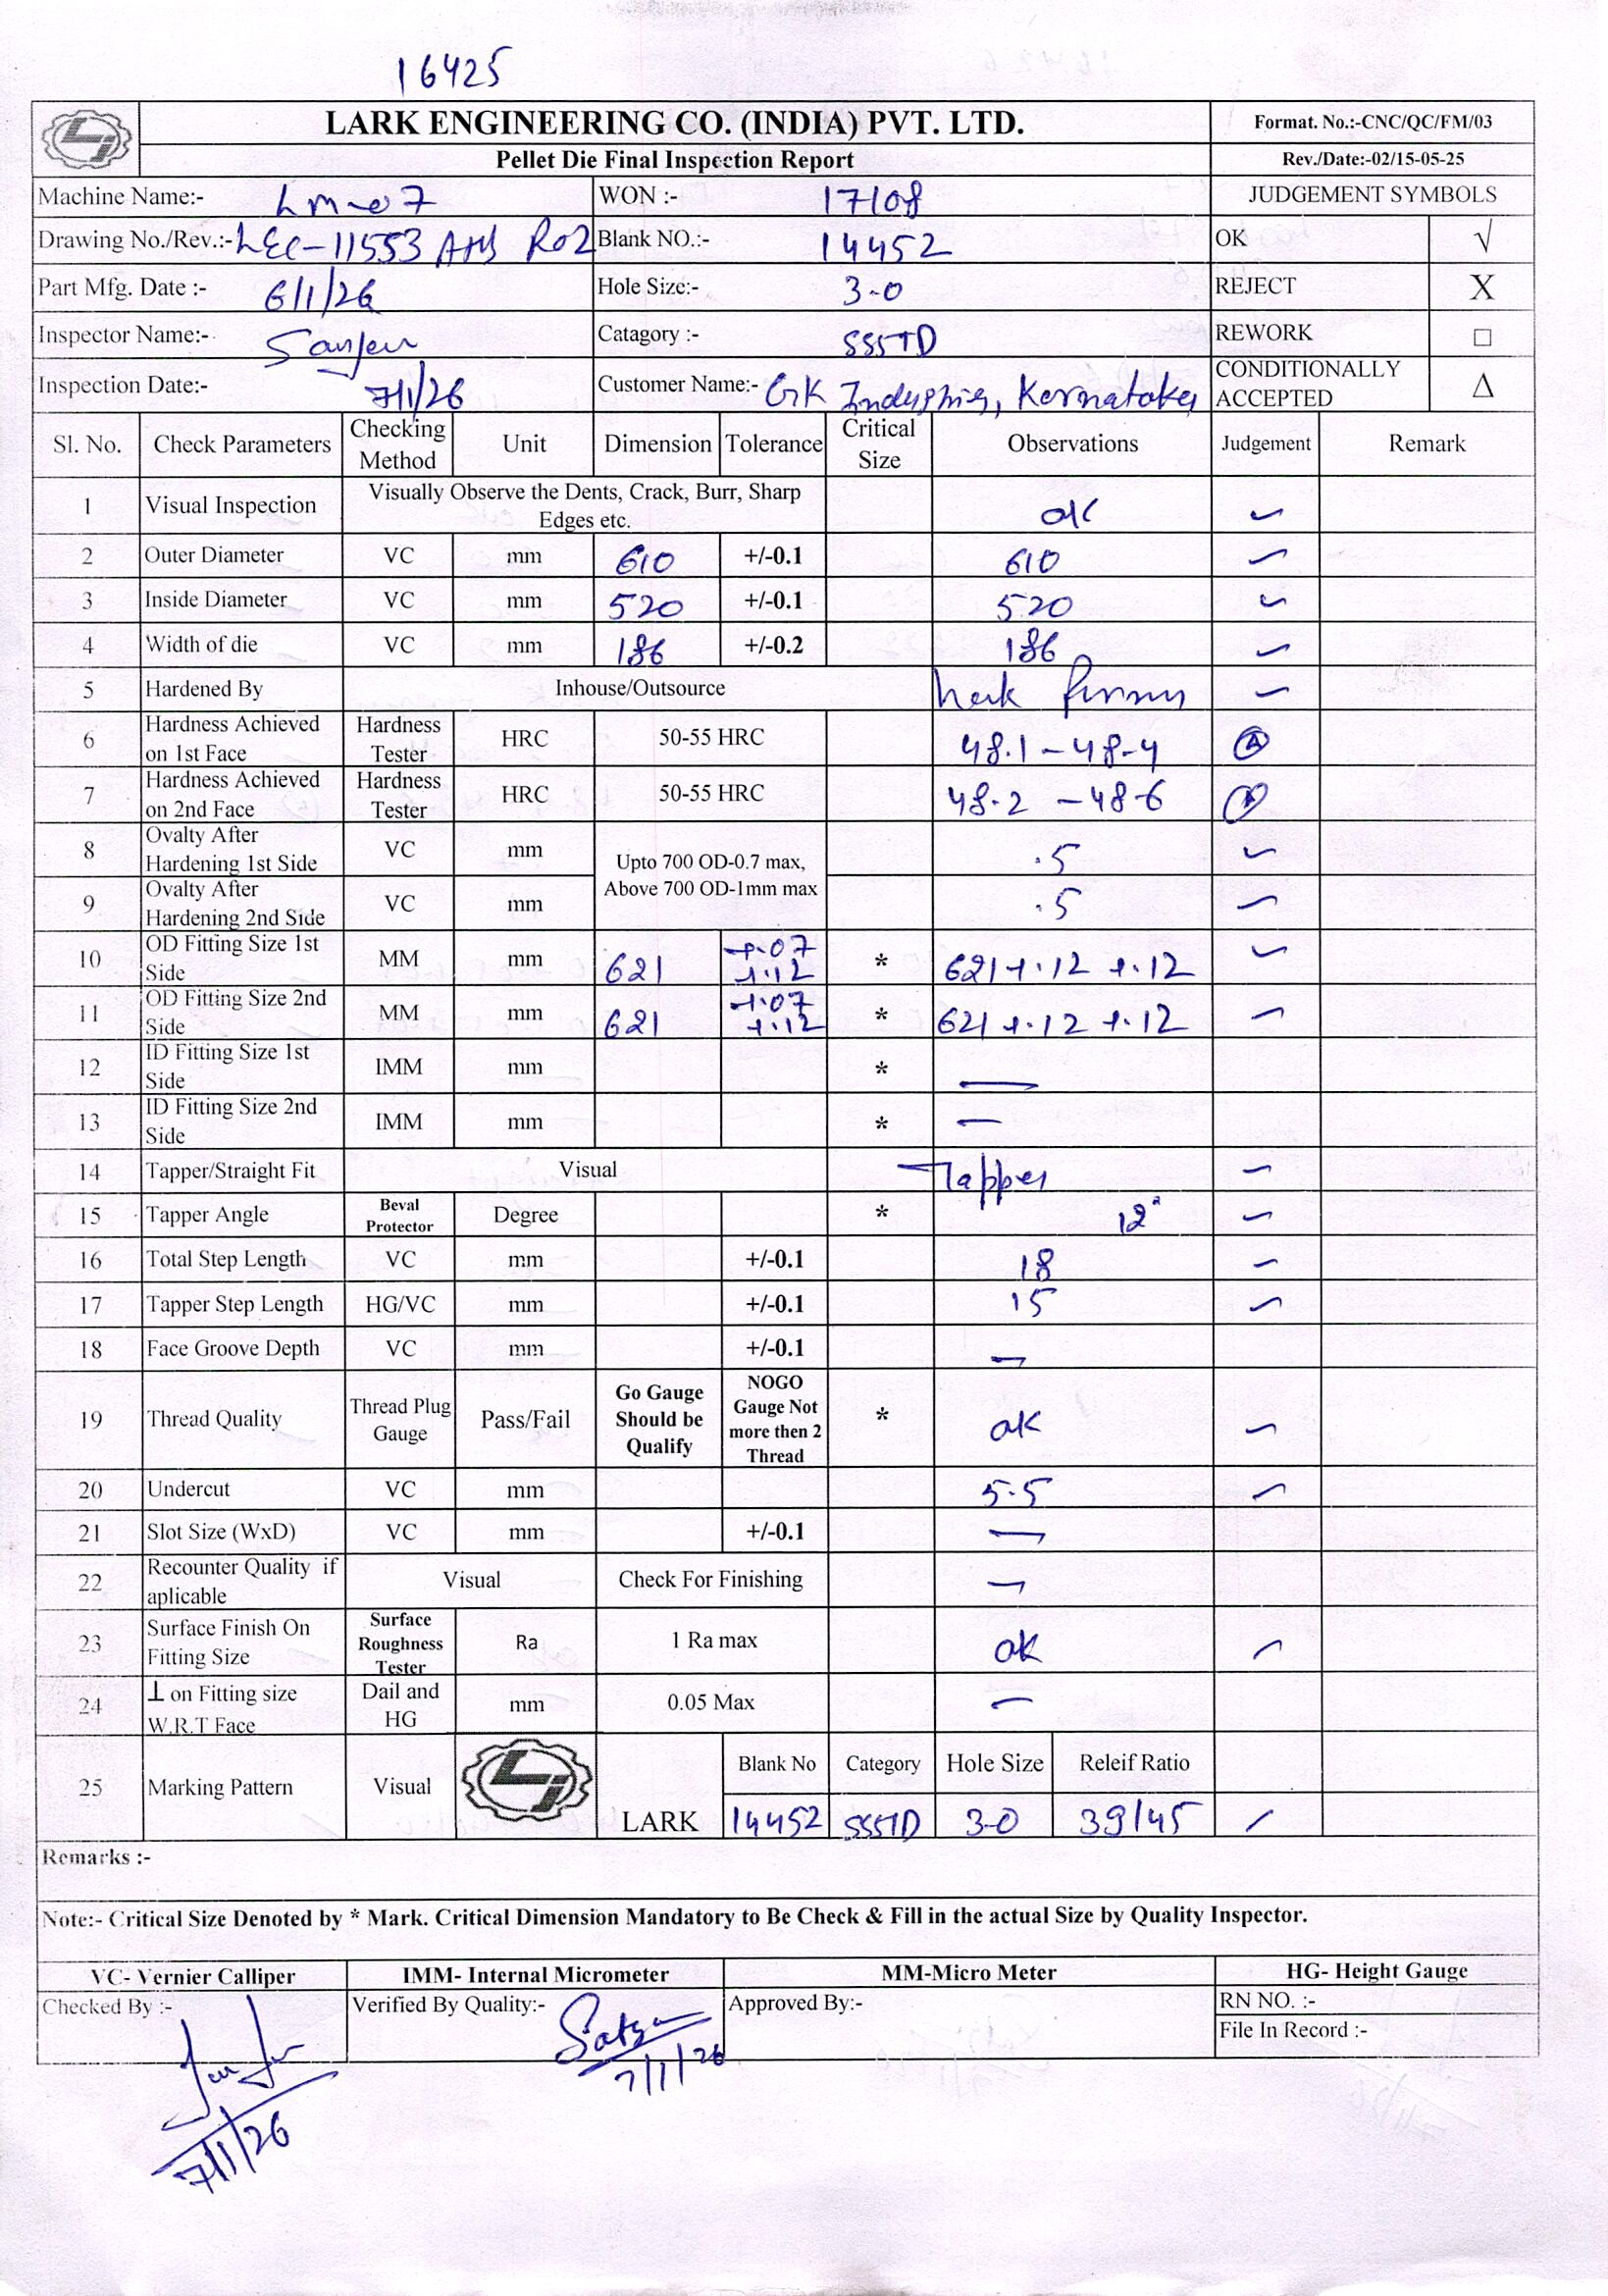 16425
LARK ENGINEERING CO. (INDIA) PVT. LTD. Format. No.:-CNC/QC/FM/03
Pellet Die Final Inspection Report Rev./Date:-02/15-05-25
Machine Name:- Lm-07 WON :- 17108 JUDGEMENT SYMBOLS
Drawing No./Rev.:- LEC-11553 AMS R02 Blank NO.:- 14452 OK √
Part Mfg. Date :- 6/1/26 Hole Size:- 3.0 REJECT X
Inspector Name:- Sanjeev Catagory :- SSSTD REWORK □
Inspection Date:- 7/1/26 Customer Name:- GK Industries, Kernataka CONDITIONALLY ACCEPTED Δ
Sl. No. Check Parameters Checking Method Unit Dimension Tolerance Critical Size Observations Judgement Remark
1 Visual Inspection Visually Observe the Dents, Crack, Burr, Sharp Edges etc. ok ✓
2 Outer Diameter VC mm 610 +/-0.1 610 ✓
3 Inside Diameter VC mm 520 +/-0.1 520 ✓
4 Width of die VC mm 186 +/-0.2 186 ✓
5 Hardened By Inhouse/Outsource ✓
6 Hardness Achieved on 1st Face Hardness Tester HRC 50-55 HRC 48.1 - 48.4
7 Hardness Achieved on 2nd Face Hardness Tester HRC 50-55 HRC 48.2 - 48.6
8 Ovalty After Hardening 1st Side VC mm Upto 700 OD-0.7 max, Above 700 OD-1mm max .5 ✓
9 Ovalty After Hardening 2nd Side VC mm .5 ✓
10 OD Fitting Size 1st Side MM mm 621 +.07 +.12 * 621 +.12 +.12 ✓
11 OD Fitting Size 2nd Side MM mm 621 +.07 +.12 * 621 +.12 +.12 ✓
12 ID Fitting Size 1st Side IMM mm * —
13 ID Fitting Size 2nd Side IMM mm * —
14 Tapper/Straight Fit Visual Tapper ✓
15 Tapper Angle Beval Protector Degree * 12° ✓
16 Total Step Length VC mm +/-0.1 18 ✓
17 Tapper Step Length HG/VC mm +/-0.1 15 ✓
18 Face Groove Depth VC mm +/-0.1 —
19 Thread Quality Thread Plug Gauge Pass/Fail Go Gauge Should be Qualify NOGO Gauge Not more then 2 Thread * ok ✓
20 Undercut VC mm 5.5 ✓
21 Slot Size (WxD) VC mm +/-0.1 —
22 Recounter Quality if aplicable Visual Check For Finishing —
23 Surface Finish On Fitting Size Surface Roughness Tester Ra 1 Ra max ok ✓
24 ⊥ on Fitting size W.R.T Face Dail and HG mm 0.05 Max —
25 Marking Pattern Visual LARK Blank No Category Hole Size Releif Ratio
14452 SSSTD 3.0 39/45 ✓
Remarks :-
Note:- Critical Size Denoted by * Mark. Critical Dimension Mandatory to Be Check & Fill in the actual Size by Quality Inspector.
VC- Vernier Calliper IMM- Internal Micrometer MM-Micro Meter HG- Height Gauge
Checked By :- Verified By Quality:- Satya Approved By:- RN NO. :-
File In Record :-
7/1/26
7/1/26